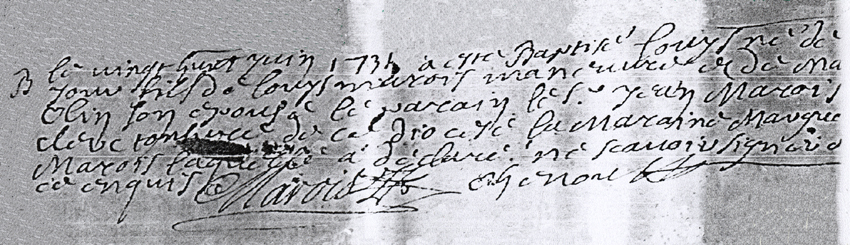 B le vingt huit juin 1734 a esté Baptisé louys né de
jour fils de louys marois manoeuvre et de Ma
son epouse le parain le Sr jean Marois
clerc tonsuré de ce Diocese la Maraine Margue
Marois laquelle a declaré ne scavoir signer
ce enquise Marois